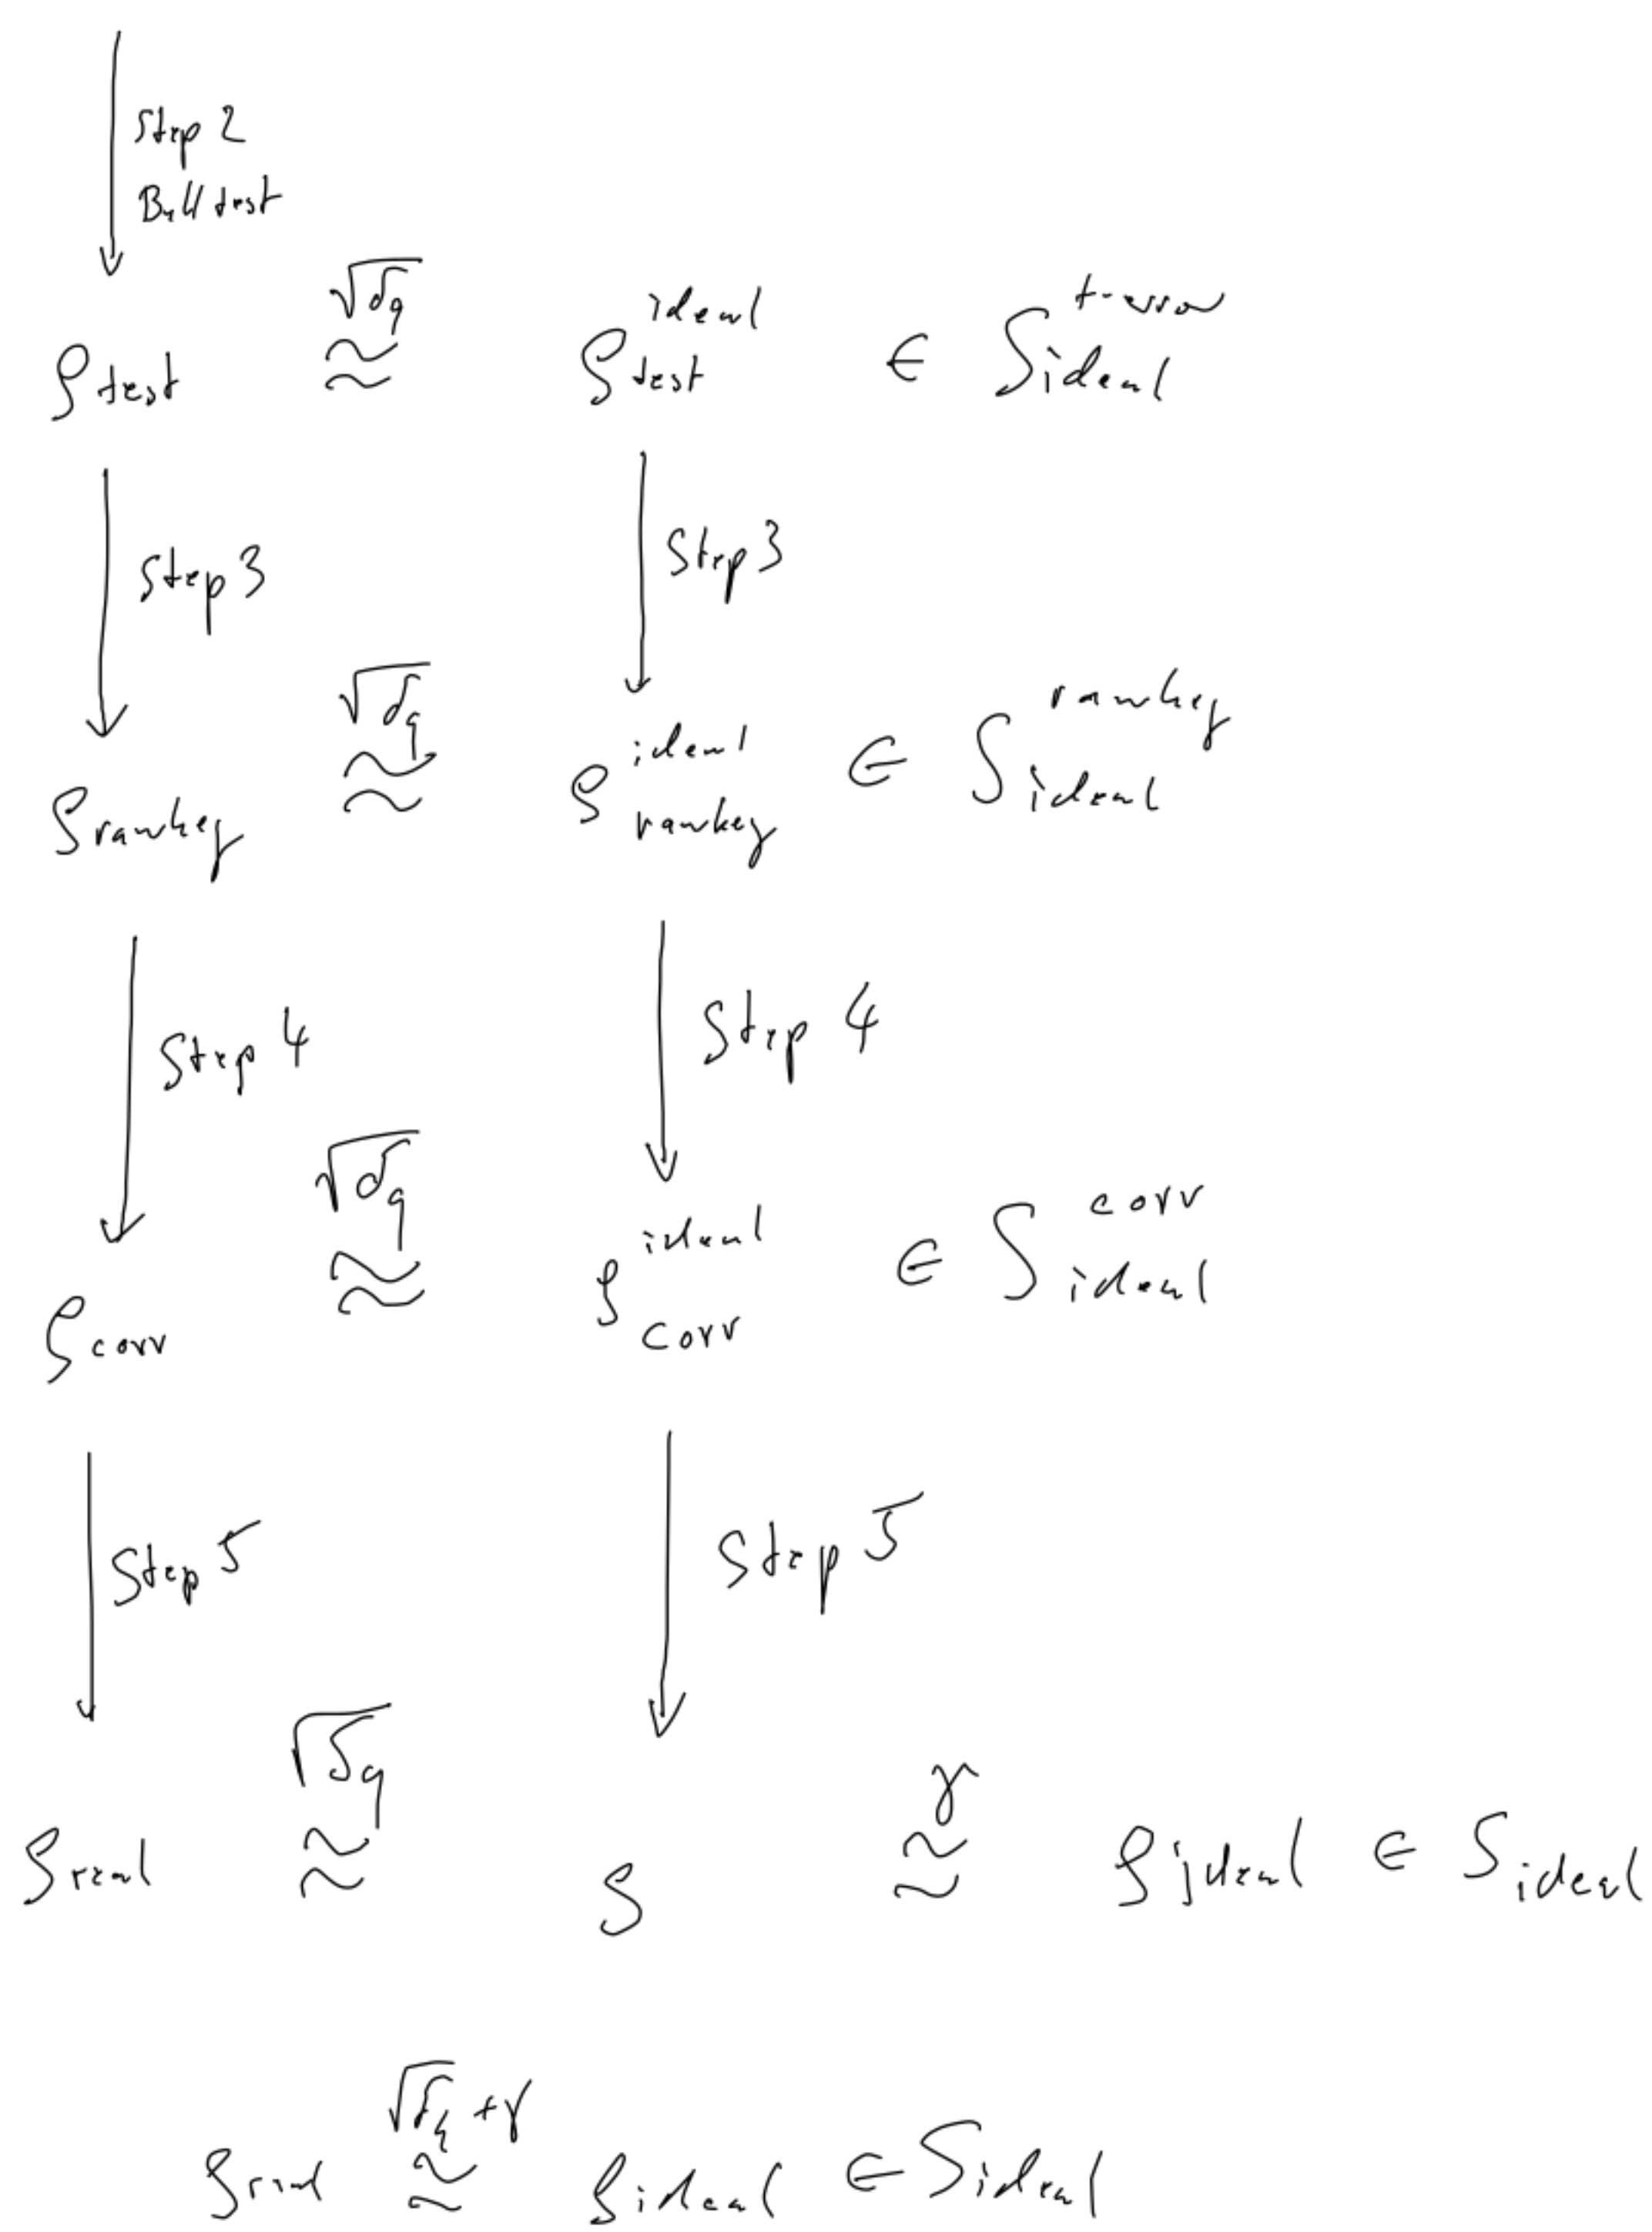 Step 2
Bell test
ρ_test ≈^{√δ_q} ρ^{ideal}_test ∈ S^{t-error}_{ideal}
Step 3 Step 3
ρ_rawkey ≈^{√δ_q} ρ^{ideal}_rawkey ∈ S^{rawkey}_{ideal}
Step 4 Step 4
ρ_corr ≈^{√δ_q} ρ^{ideal}_corr ∈ S^{corr}_{ideal}
Step 5 Step 5
ρ_real ≈^{√δ_q} ρ ≈^{γ} ρ_ideal ∈ S_ideal
ρ_real ≈^{√δ_q + γ} ρ_ideal ∈ S_ideal